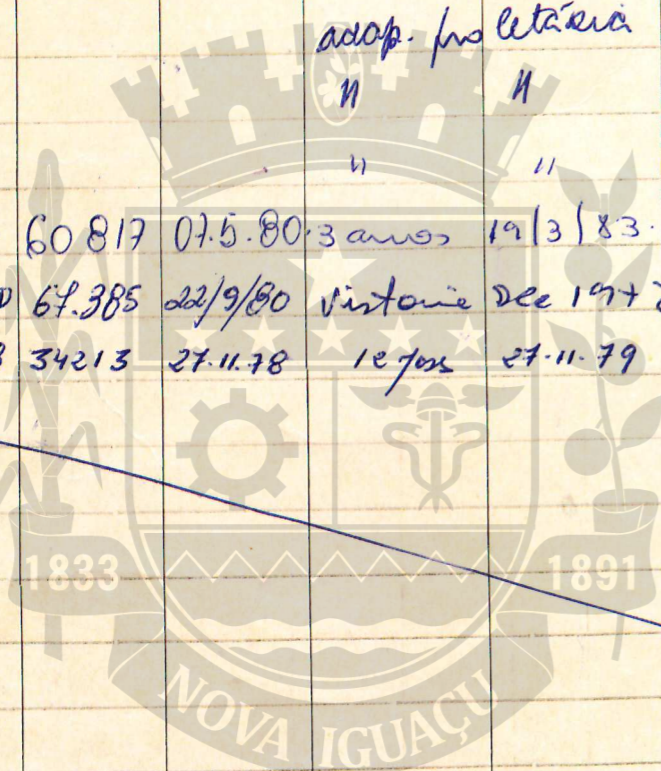 adap. proletária
" "
" "
60817 07.5.80 3 anos 19/3/83.
67.385 22/9/80 Vistoria Dec 197
34213 27.11.78 27.11.79
1833 1891
NOVA IGUAÇU